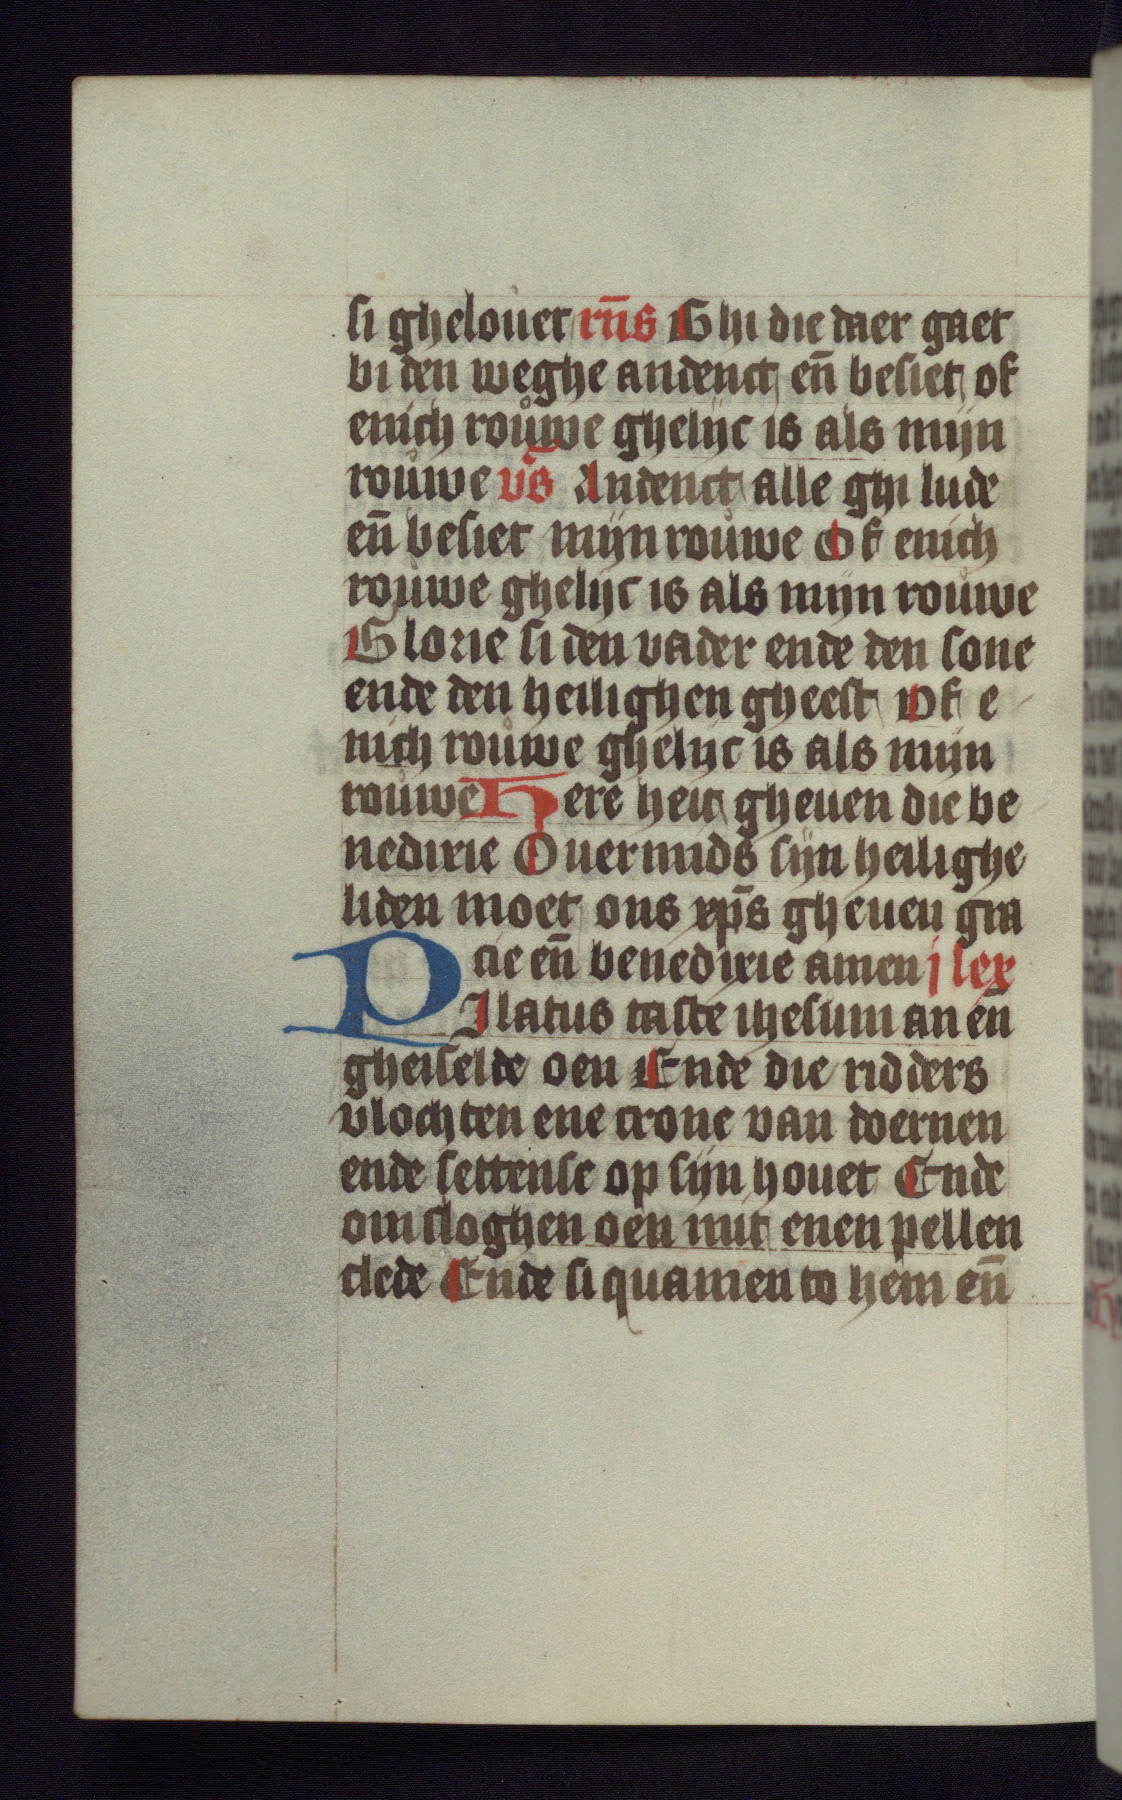 si ghelouet rn̄s Ghi die daer gaet
bi den weghe andenct en̄ besiet of
enich rouwe ghelijc is als mijn
rouwe vs̄ Andenct alle ghi lude
en̄ besiet mijn rouwe Of enich
rouwe ghelijc is als mijn rouwe
Glorie si den vader ende den sone
ende den heilighen gheest Of e
nich rouwe ghelijc is als mijn
rouwe Here heit gheuen die be
nedixie Ouermids sijn heilighe
liden moet ons xp̄s gheuen gra
cie en̄ benedixie amen j lex
PIlatus taste ihesum an en̄
gheiselde oen Ende die ridders
vlochten ene crone van doernen
ende settense op sijn houet Ende
omsloghen oen mit enen pellen
clede Ende si quamen to hem en̄